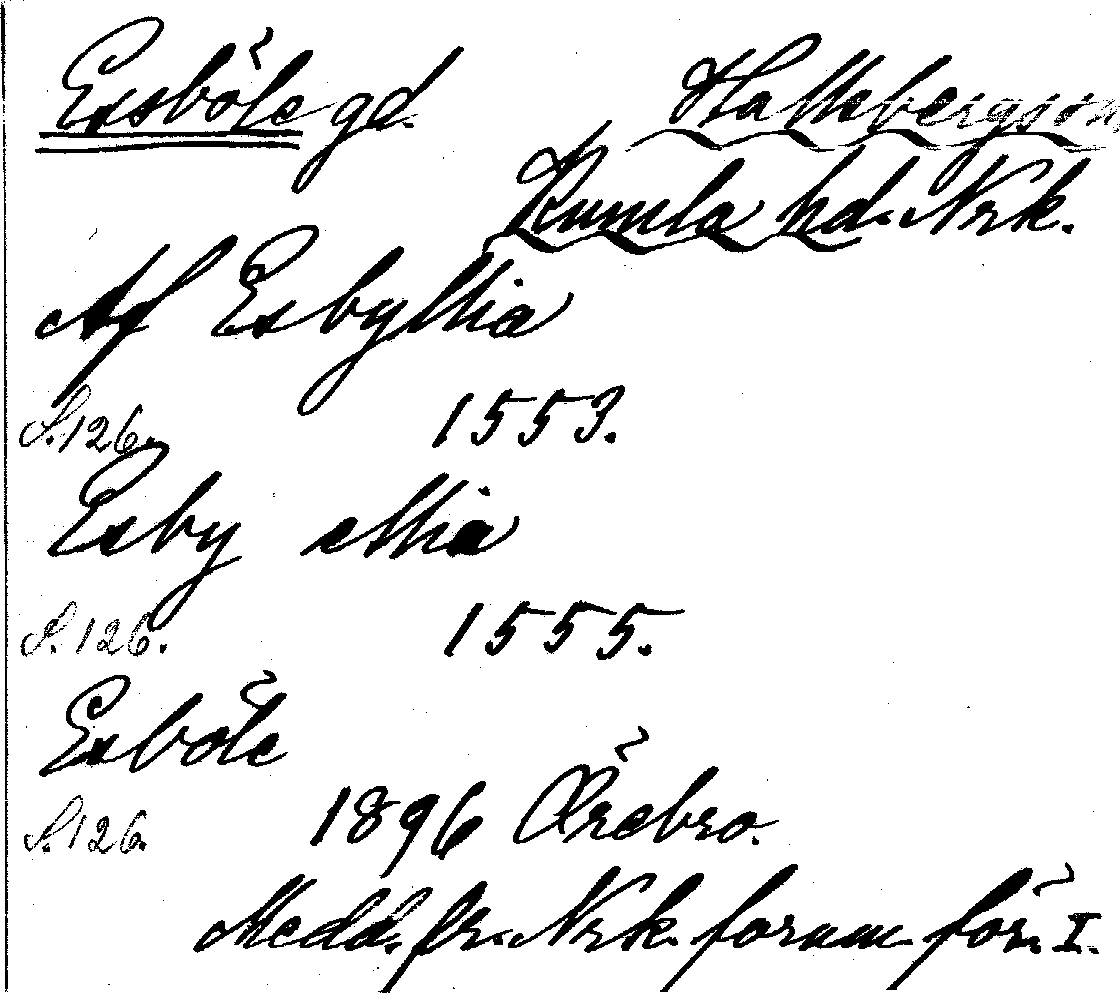 Essböle gd. Hallsbergs sn,
Kumla hd. Nrk.
Af Esbyllia
S. 126. 1553.
Esby
S. 126. 1555.
Esböle
S. 126. 1896 Örebro.
Medd. fr. Nrk. fornm. för. I.